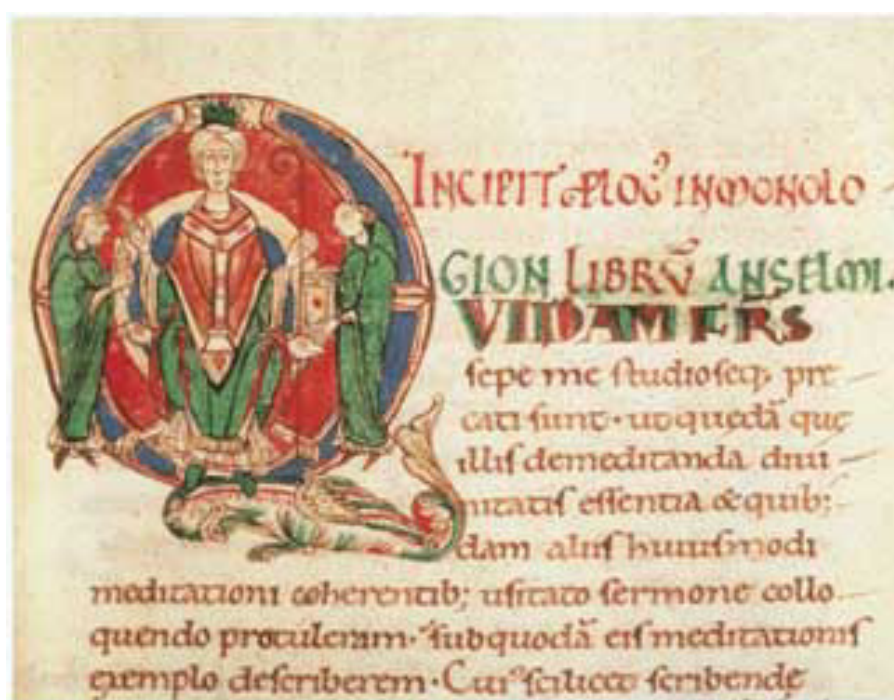 INCIPIT PLOG̃ IN MONOLO
GION LIBRṼ ANSELMI.
QVIDAM FR̃S
sepe me studioseq; pre
cati sunt · ut quedã que
illis de meditanda diui
nitatis essentia & quib;
dam aliis huiusmodi
meditationi coherentib; usitato sermone collo
quendo protuleram · sub quodã eis meditationis
exemplo describerem · Cui⁹ scilicet scribende